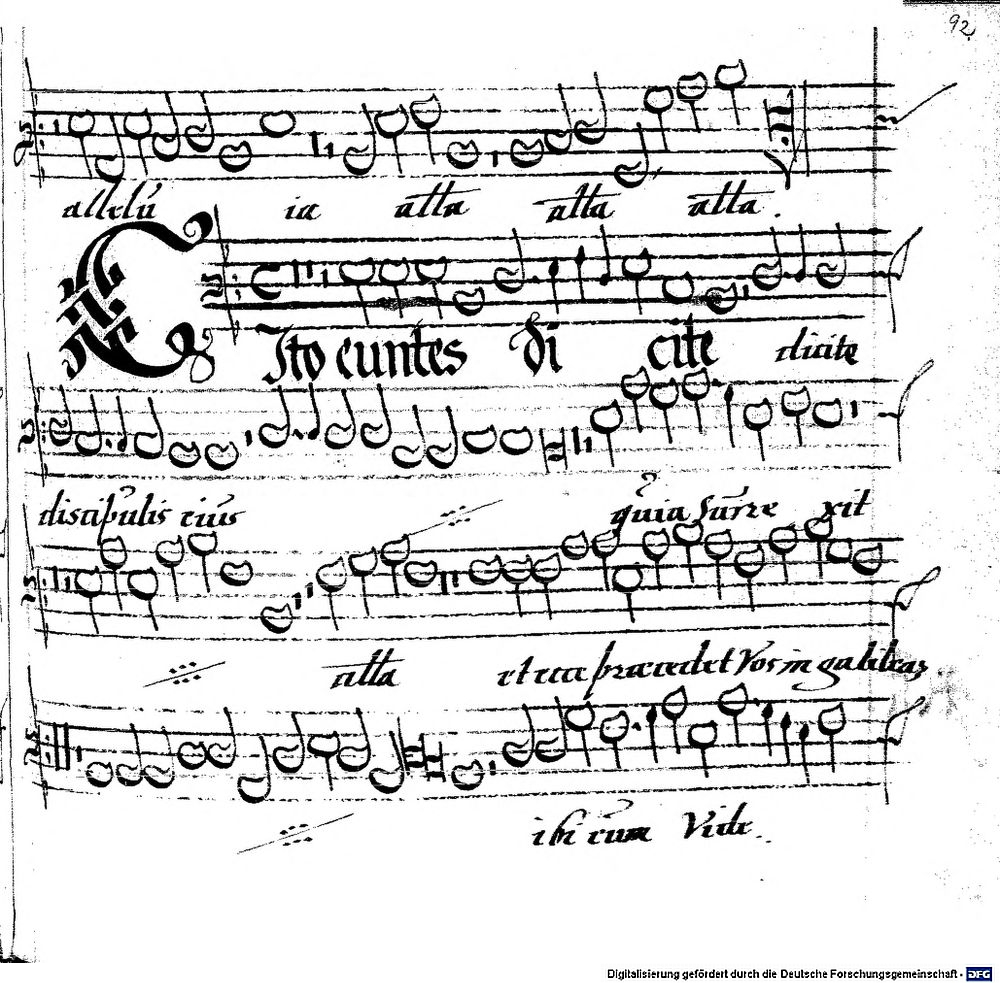 92
allelu ia alla alla alla.
CIto euntes di cite dicite
discipulis eius quia surre xit
alla et ecce præcedet Vos in galileaz.
ibi eum Vide.
Digitalisierung gefördert durch die Deutsche Forschungsgemeinschaft - DFG